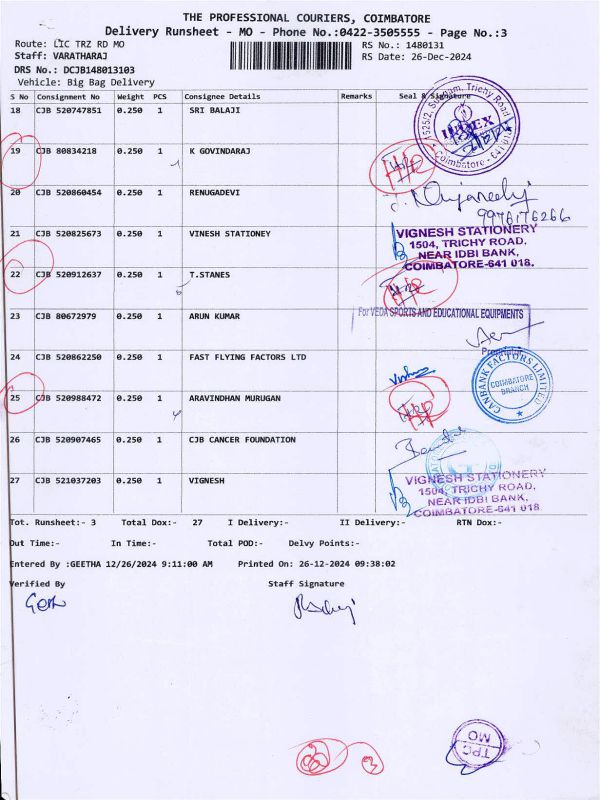 THE PROFESSIONAL COURIERS, COIMBATORE
Delivery Runsheet - MO - Phone No.:0422-3505555 - Page No.:3
Route: LIC TRZ RD MO RS No.: 1480131
Staff: VARATHARAJ RS Date: 26-Dec-2024
DRS No.: DCJB148013103
Vehicle: Big Bag Delivery
S No Consignment No Weight PCS Consignee Details Remarks Seal & Signature
18 CJB 520747851 0.250 1 SRI BALAJI
1525/2, Sungam, Trichy Road
INDEX
Coimbatore - 641 018
19 CJB 80834218 0.250 1 K GOVINDARAJ
20 CJB 520860454 0.250 1 RENUGADEVI
9976176266
21 CJB 520825673 0.250 1 VINESH STATIONEY
VIGNESH STATIONERY
1504, TRICHY ROAD,
NEAR IDBI BANK,
COIMBATORE-641 018.
22 CJB 520912637 0.250 1 T.STANES
23 CJB 80672979 0.250 1 ARUN KUMAR
For VEDA SPORTS AND EDUCATIONAL EQUIPMENTS
24 CJB 520862250 0.250 1 FAST FLYING FACTORS LTD
CANBANK FACTORS LIMITED
COIMBATORE
BRANCH
25 CJB 520988472 0.250 1 ARAVINDHAN MURUGAN
26 CJB 520907465 0.250 1 CJB CANCER FOUNDATION
27 CJB 521037203 0.250 1 VIGNESH
VIGNESH STATIONERY
1504, TRICHY ROAD,
NEAR IDBI BANK,
COIMBATORE-641 018
Tot. Runsheet:- 3 Total Dox:- 27 I Delivery:- II Delivery:- RTN Dox:-
Out Time:- In Time:- Total POD:- Delvy Points:-
Entered By :GEETHA 12/26/2024 9:11:00 AM Printed On: 26-12-2024 09:38:02
Verified By Staff Signature
TPC
MO